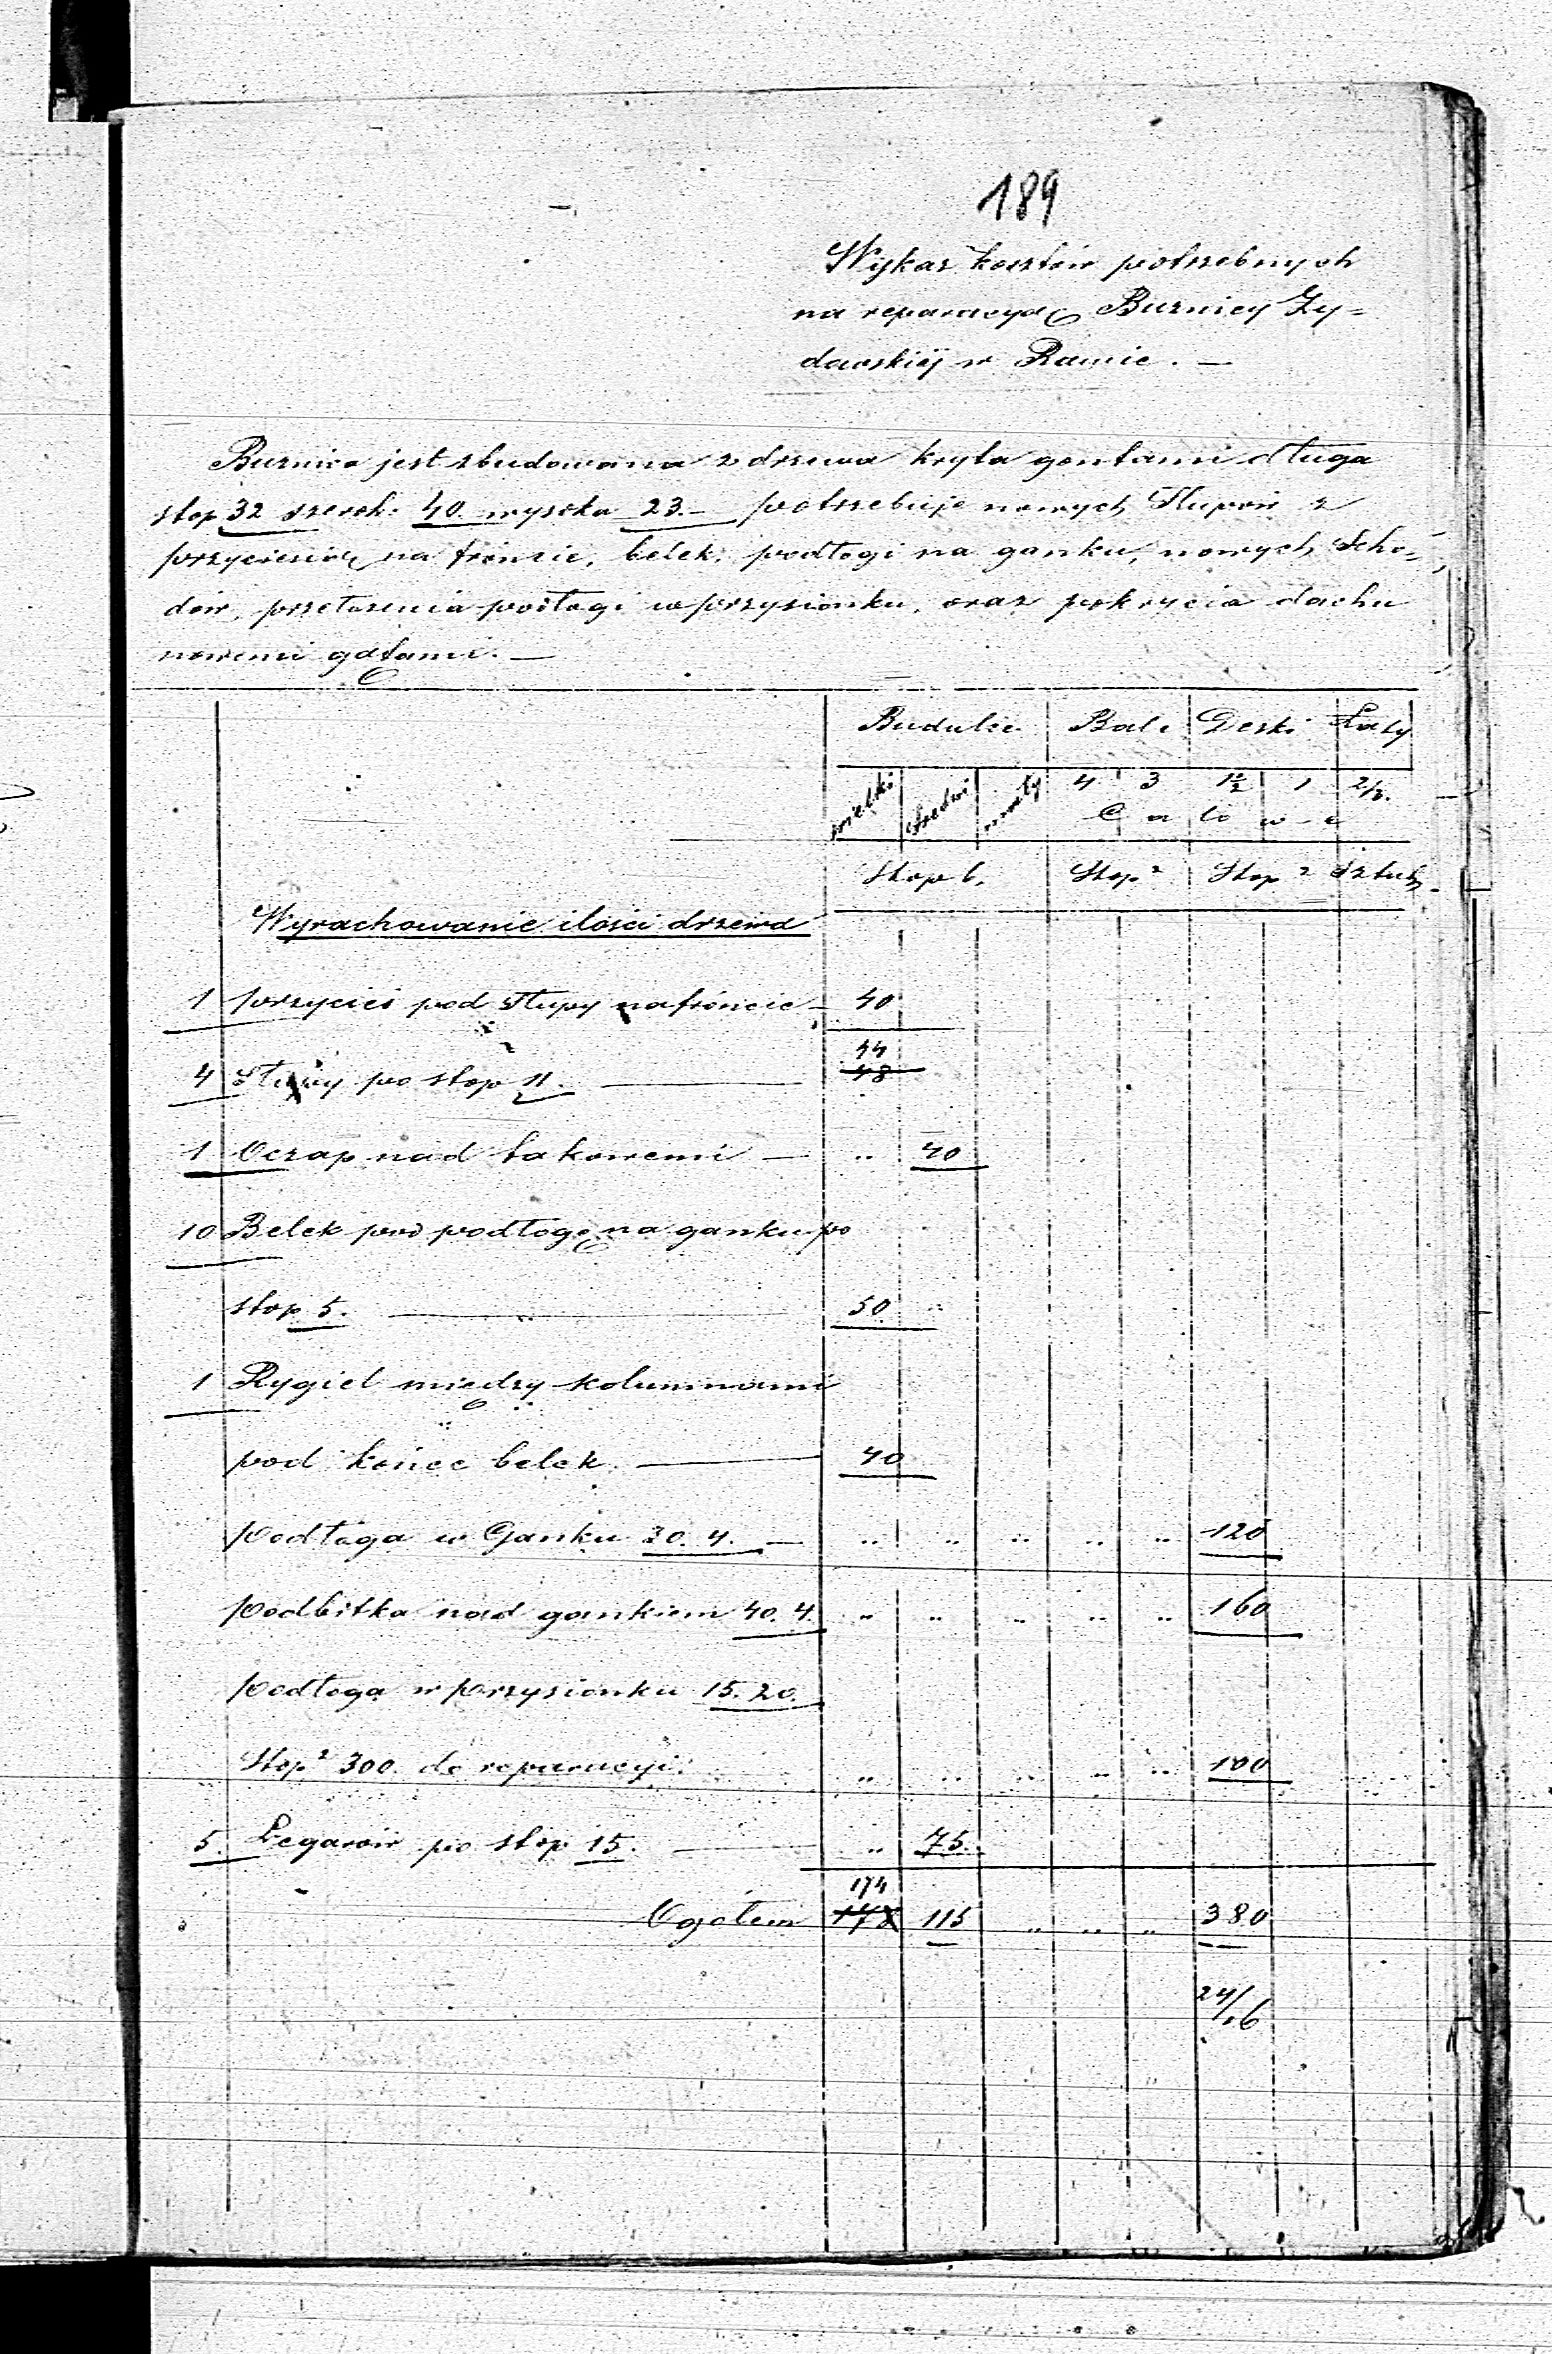 189
Wykaz kosztów potrzebnych
na reparacyą Buznicy Ży=
dowskiéj w Rawie. —
Buznica jest zbudowana z drzewa kryta gontami długa
stop 32 szerok: 40. wysoka 23. — potrzebuje nowych Słupów z
przyciesią na froncie, belek, podłogi na ganku, nowych Scho-
dów, przełożenia podłogi w przysionku, oraz pokrycia dachu
nowemi gątami. —
Budulec Bale Deski Łaty
wielki średni mały 4 3 1½ 1 2/3.
C a l o w e
Stop b. Stop² Stop² Sztuk
Wyrachowanie ilości drzewa
1 przycieś pod słupy na froncie — 40
44
4 słupy po stop 11. — 48
1 Oczap nad takowemi — .. 40
10 Belek pod podłogę na ganku po
stop 5. — 50
1 Rygiel między kolumnami
pod końce belek. — 40
Podłoga w Ganku 30. 4. — .. .. .. .. .. 120
Podbitka nad gankiem 40. 4. .. .. .. .. .. 160
Podłoga w przysionku 15. 20.
Stop² 300. do reparacyi. .. .. .. .. .. 100
5. Legarów po stop 15. — .. 75.
174
Ogółem 178 115 .. .. .. 380
24/16